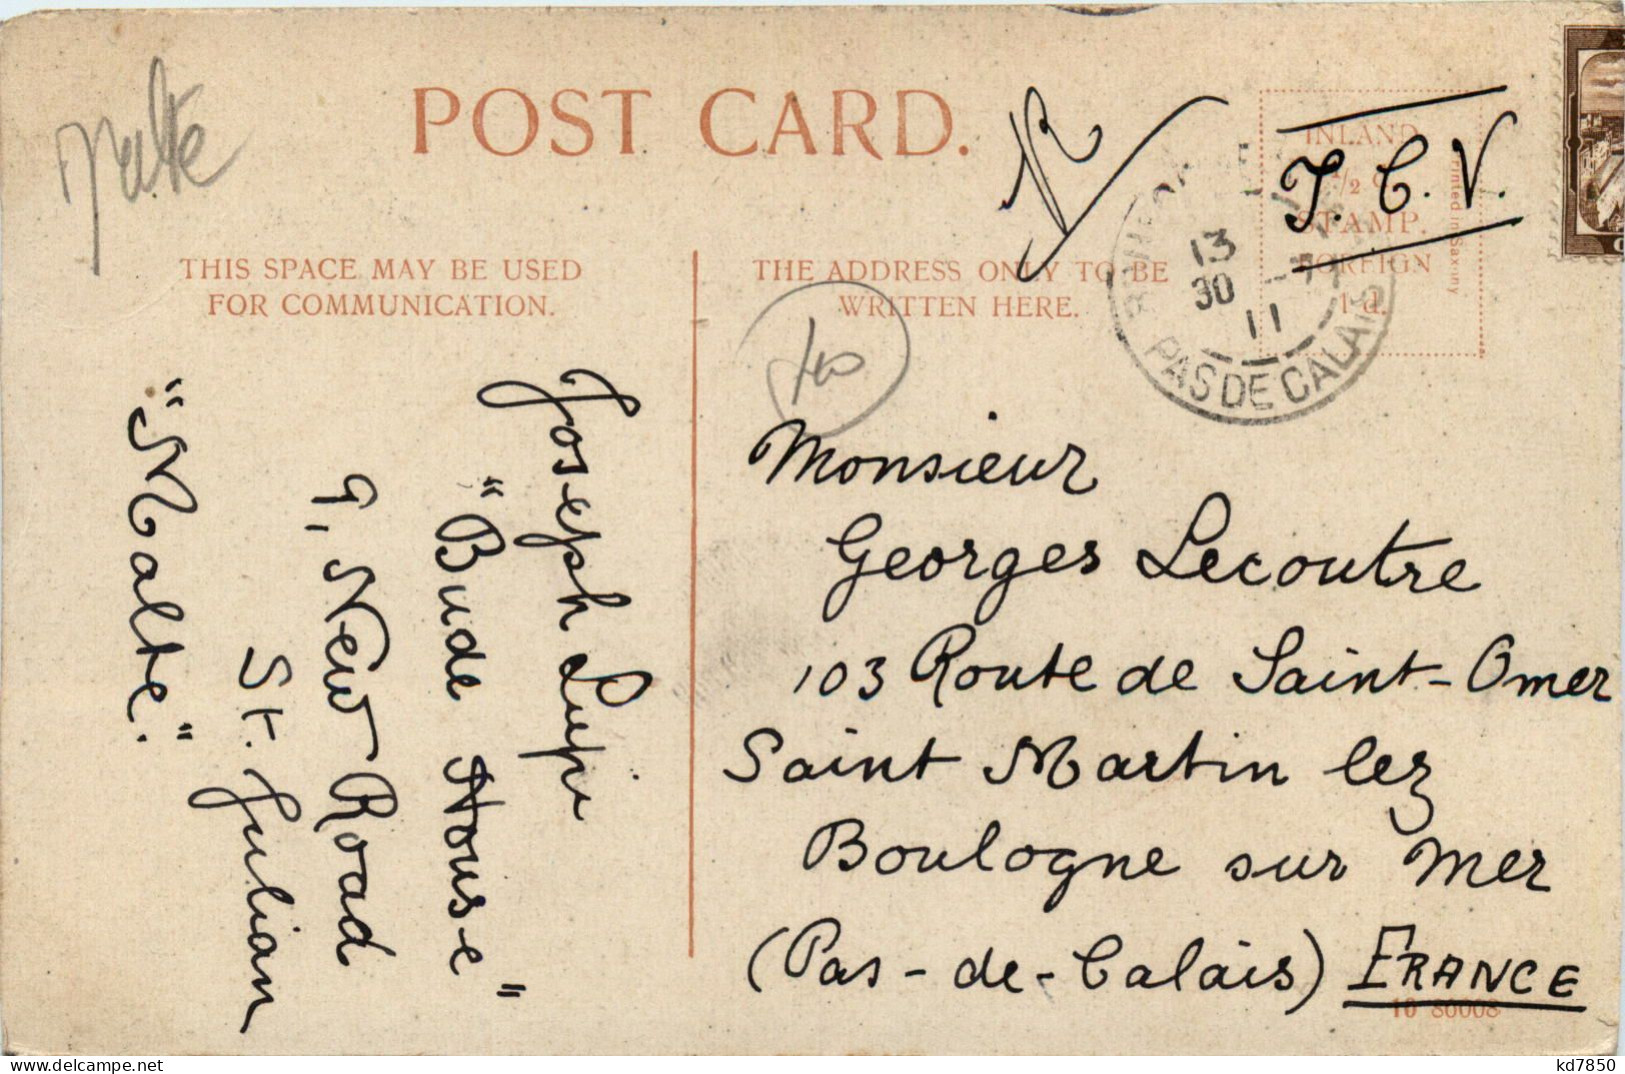 Malte
POST CARD.
R
T.C.V.
INLAND
½ d
STAMP.
FOREIGN
1 d.
Printed in Saxony
13
30 -
11
PAS DE CALAIS
THIS SPACE MAY BE USED
FOR COMMUNICATION.
THE ADDRESS ONLY TO BE
WRITTEN HERE.
Joseph Lupi
"Bude House"
9, New Road
St. Julian
"Malte."
Monsieur
Georges Lecoutre
103 Route de Saint-Omer
Saint Martin lez
Boulogne sur Mer
(Pas-de-Calais) FRANCE
10 86008
kd7850